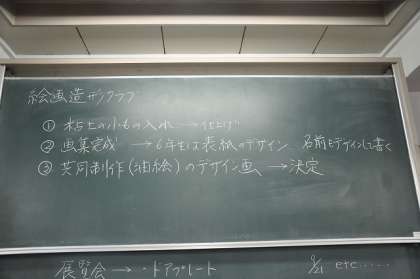 絵画造形クラブ
① 粘土の小もの入れ → 仕上げ
② 画集完成 → 6年生は表紙のデザイン 名前もデザインして書く
③ 共同制作(油絵)のデザイン画 → 決定
展覧会 → ・ドアプレート etc……